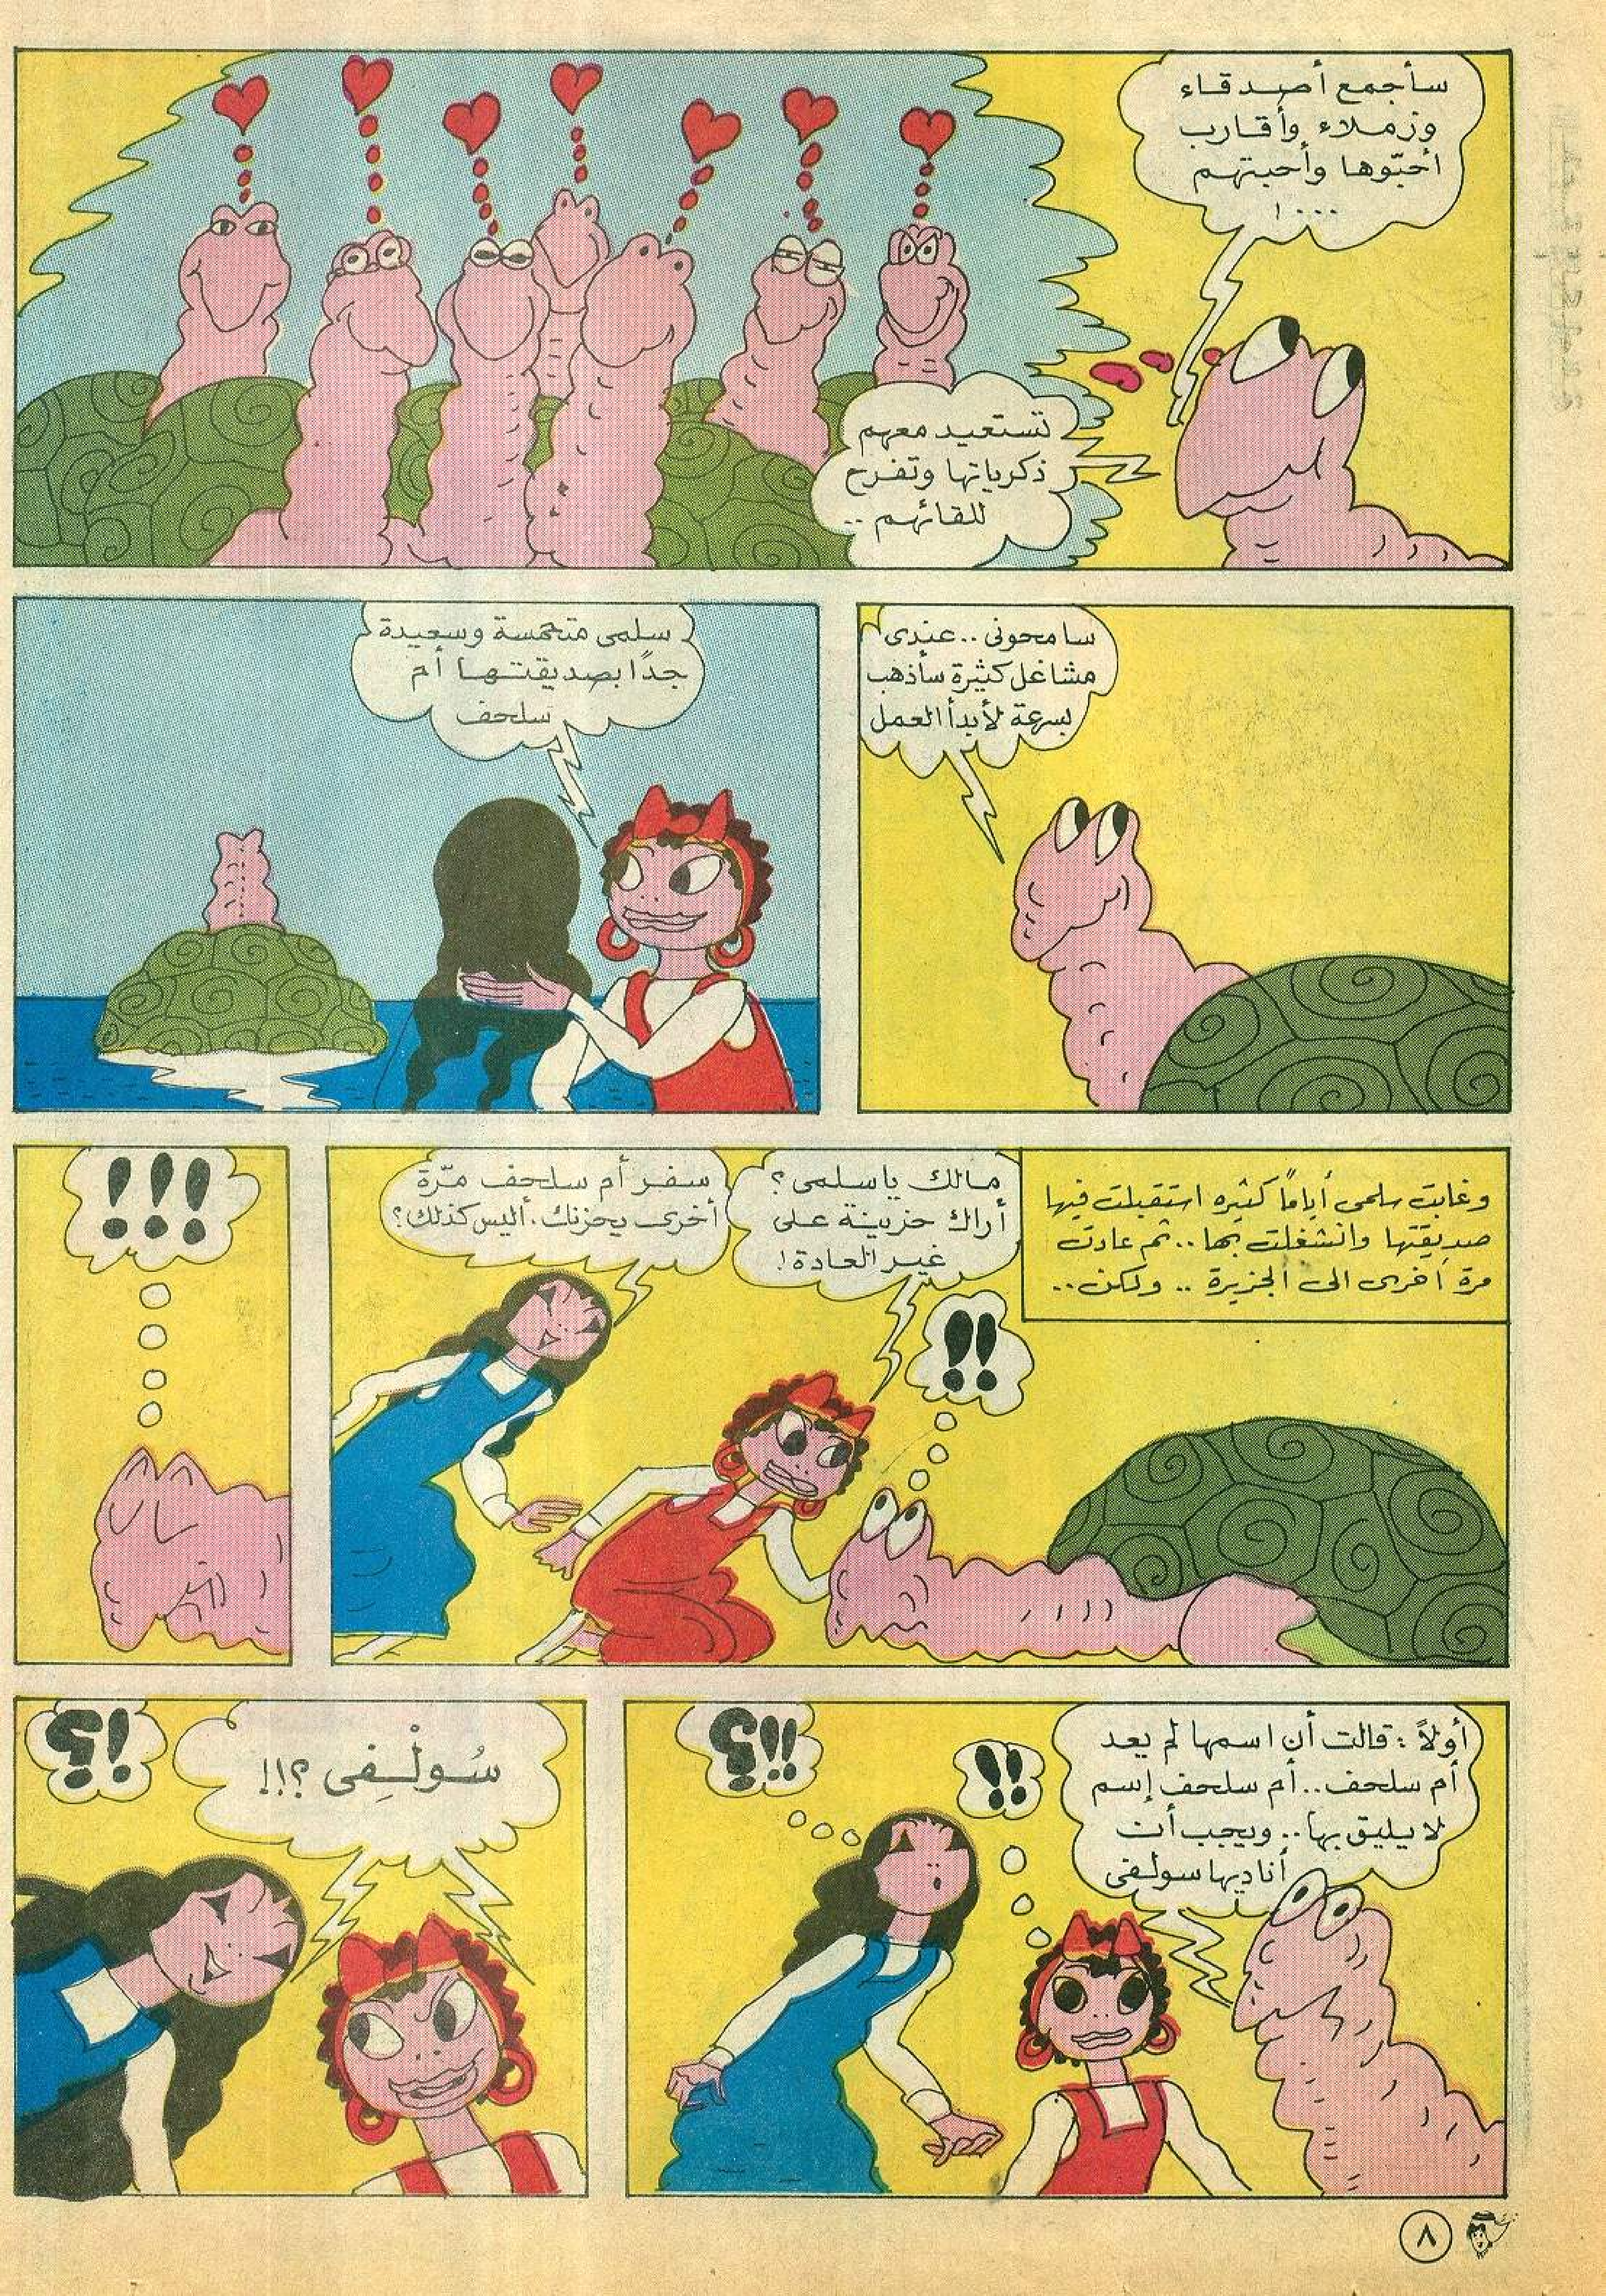 سأجمع أصدقاء
وزملاء وأقارب
أحبّوها وأحبتهم
...!
تستعيد معهم
ذكرياتها وتفرح
للقائهم ..
سامحونى .. عندى
مشاغل كثيرة سأذهب
بسرعة لأبدأ العمل
سلمى متحمسة وسعيدة
جدًا بصديقتها أم
سلحف
وغابت سلمى أياماً كثيره استقبلت فيها
صديقتها وانشغلت بها .. ثم عادت
مرة أخرى الى الجزيرة .. ولكن ..
مالك ياسلمى ؟
أراك حزينة على
غير العادة !
!!
سفر أم سلحف مرّة
أخرى يحزنك . أليس كذلك ؟
!!!
أولاً : قالت أن اسمها لم يعد
أم سلحف .. أم سلحف إسم
لا يليق بها .. ويجب أن
أناديها سولفى
!!
!!؟
سُولْفِى ؟!!
!؟
٨